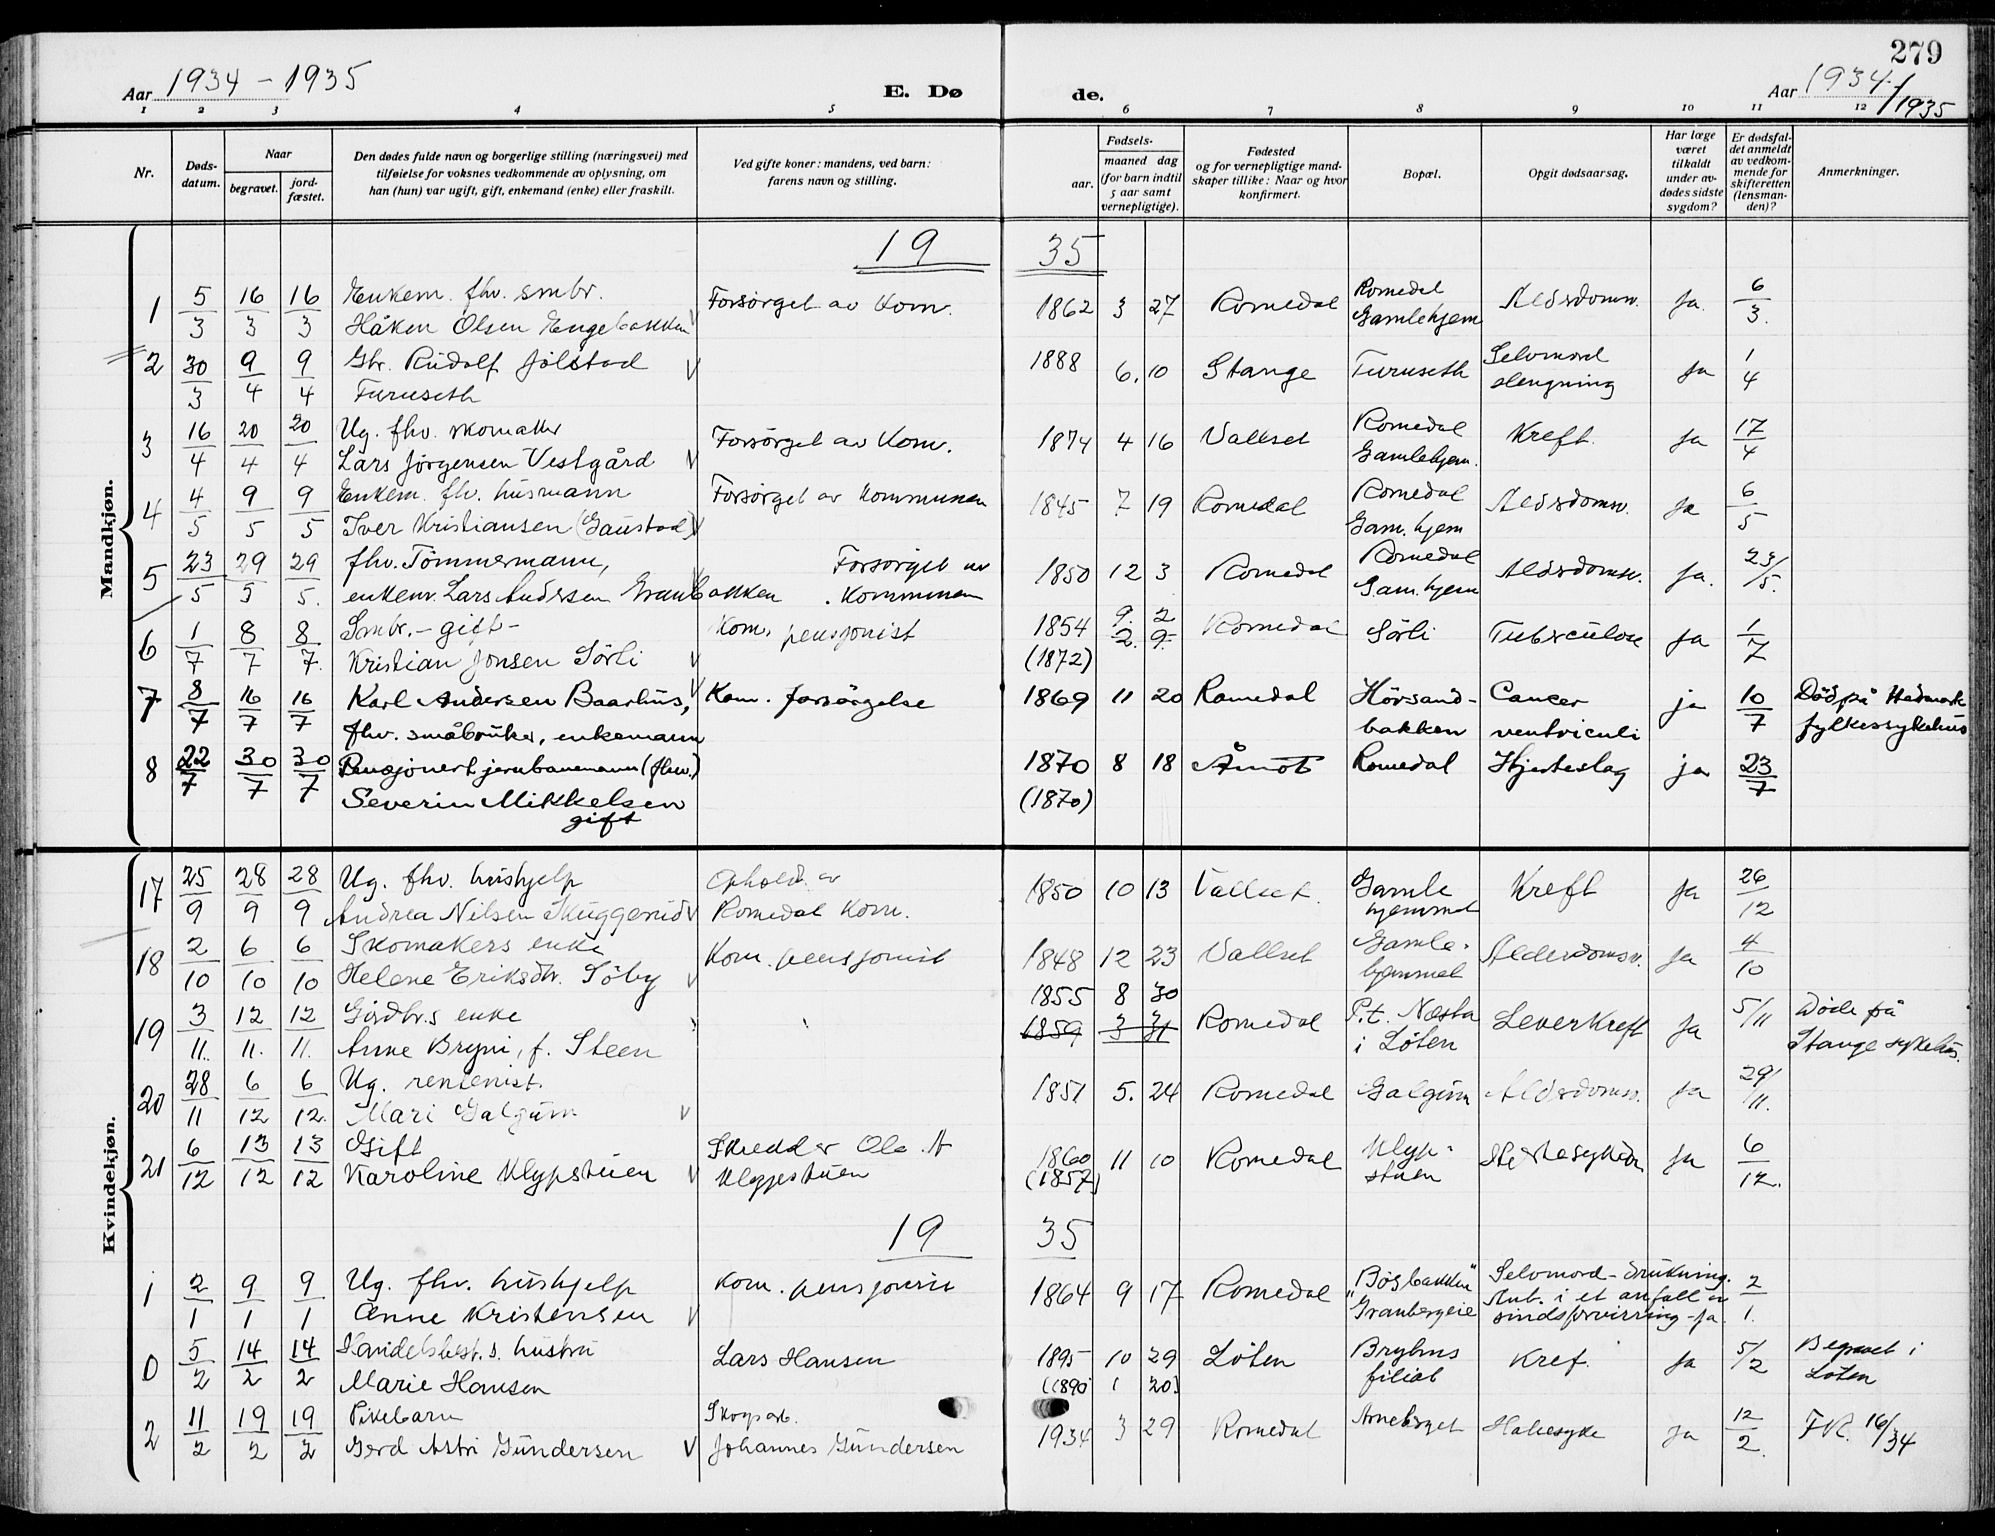 279
Aar 1934 - 1935
E. Dø
de.
Aar 1934 / 1935
1 2 3 4 5 6 7 8 9 10 11 12
Nr.
Døds-
datum.
Naar
begravet.
jord-
fæstet.
Den dødes fulde navn og borgerlige stilling (næringsvei) med
tilføielse for voksnes vedkommende av oplysning, om
han (hun) var ugift, gift, enkemand (enke) eller fraskilt.
Ved gifte koner: mandens, ved barn:
farens navn og stilling.
Fødsels-
aar.
maaned dag
(for barn indtil
5 aar samt
vernepligtige).
Fødested
og for vernepligtige mand-
skaper tillike: Naar og hvor
konfirmert.
Bopæl.
Opgit dødsaarsag.
Har læge
været
tilkaldt
under av-
dødes sidste
sygdom?
Er dødsfal-
det anmeldt
av vedkom-
mende for
skifteretten
(lensman-
den)?
Anmerkninger.
Mandkjøn.
19 35
1 5/3 16/3 16/3 Enkem. fhv. smbr. Forsørget av Kom. 1862 3 27 Romedal Romedal Alderdomsv. Ja. 6/3.
Håken Olsen Engebakken Gamlehjem
2 30/3 9/4 9/4 Gbr. Rudolf Jølstad 1888 6. 10 Stange Furuseth Selvmord Ja 1/4
Furuseth
3 16/4 20/4 20/4 Ug. fhv. skomaker Forsørget av Kom. 1874 4 16 Vallset Romedal Kreft. Ja 17/4
Lars Jørgensen Vestgård Gamlehjem.
4 4/5 9/5 9/5 Enkem. fhv. husmann Forsørget av Kommunen 1845 7 19 Romedal Romedal Alderdomsv. Ja 6/5
Iver Kristiansen (Gaustad) Gam. hjem
5 23/5 29/5 29/5. fhv. Tømmermann, Forsørget av 1850 12 3 Romedal Romedal Alderdomsv. Ja. 23/5.
enkem. Lars Andersen Granbakken. Kommunen Gam. hjem
6 1/7 8/7 8/7. Smbr. - gift - Kom. pensjonist 1854 9. 2 Romedal Sørli Tuberculose Ja 1/7
Kristian Jonsen Sørli (1872) 2. 9.
7 8/7 16/7 16/7 Karl Andersen Baarhus, Kom. forsørgelse 1869 11 20 Romedal Hørsand- Cancer ja 10/7 Død på Hedmark
fhv. småbruker, enkemann bakken ventriculi fylkessykehus
8 22/7 30/7 30/7 Pensjonert jernbanemann (fhv.) 1870 8 18 Åmot Romedal Hjerteslag ja 23/7
Severin Mikkelsen (1870)
gift
Kvindekjøn.
17 25/9 28/9 28/9 Ug. fhv. hushjelp Ophold. av 1850 10 13 Vallset. Gamle Kreft Ja 26/12
Andrea Nilsen Skuggerud Romedal Kom. hjemmet
18 2/10 6/10 6/10 Skomakers enke Kom. pensjonist 1848 12 23 Vallset Gamle- Alderdomsv. Ja 4/10
Helene Eriksdtr. Søby hjemmet
1855 8 30
19 3/11. 12/11. 12/11. Gårdbr.s enke 1859 3 31 Romedal P.t. Næsta Leverkreft Ja 5/11 Døde på
Anne Bryni, f. Steen i Løten Stange sykehus.
20 28/11 6/12 6/12. Ug. rentenist. 1851 5. 24 Romedal Galgum Alderdomsv. Ja 29/11.
Mari Galgum
21 6/12 13/12 13/12 Gift Skredder Ole A 1860 11 10 Romedal Klyp- Hjertesykdom Ja 6/12.
Karoline Klypstuen Klypestuen (1857) stuen
19 35
1 2/1 9/1 9/1 Ug. fhv. hushjelp Kom. pensjonist 1864 9 17 Romedal "Bøgbakken" Selvmord - drukning. 2/1.
Anne Kristensen Granbergeie Ant. i et anfall av
sindsforvirring - ja.
0 5/2 14/2 14/2 Handelsbest.s. hustru Lars Hansen 1895 10 29 Løten Bryhns Kref. Ja 5/2 Begravet i
Marie Hansen (1890 1 20) filial Løten
2 11/2 19/2 19/2 Pikebarn Skogsarb. 1934 3 29 Romedal Arneberget Halsesyke ja 12/2 F.R. 16/34
Gerd Astri Gundersen Johannes Gundersen